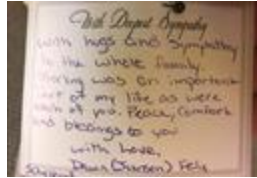 With Deepest Sympathy
With hugs and Sympathy
to the whole family.
was an important
part of my life as were
each of you. Peace, Comfort
and blessings to you
with Love,
Dawn